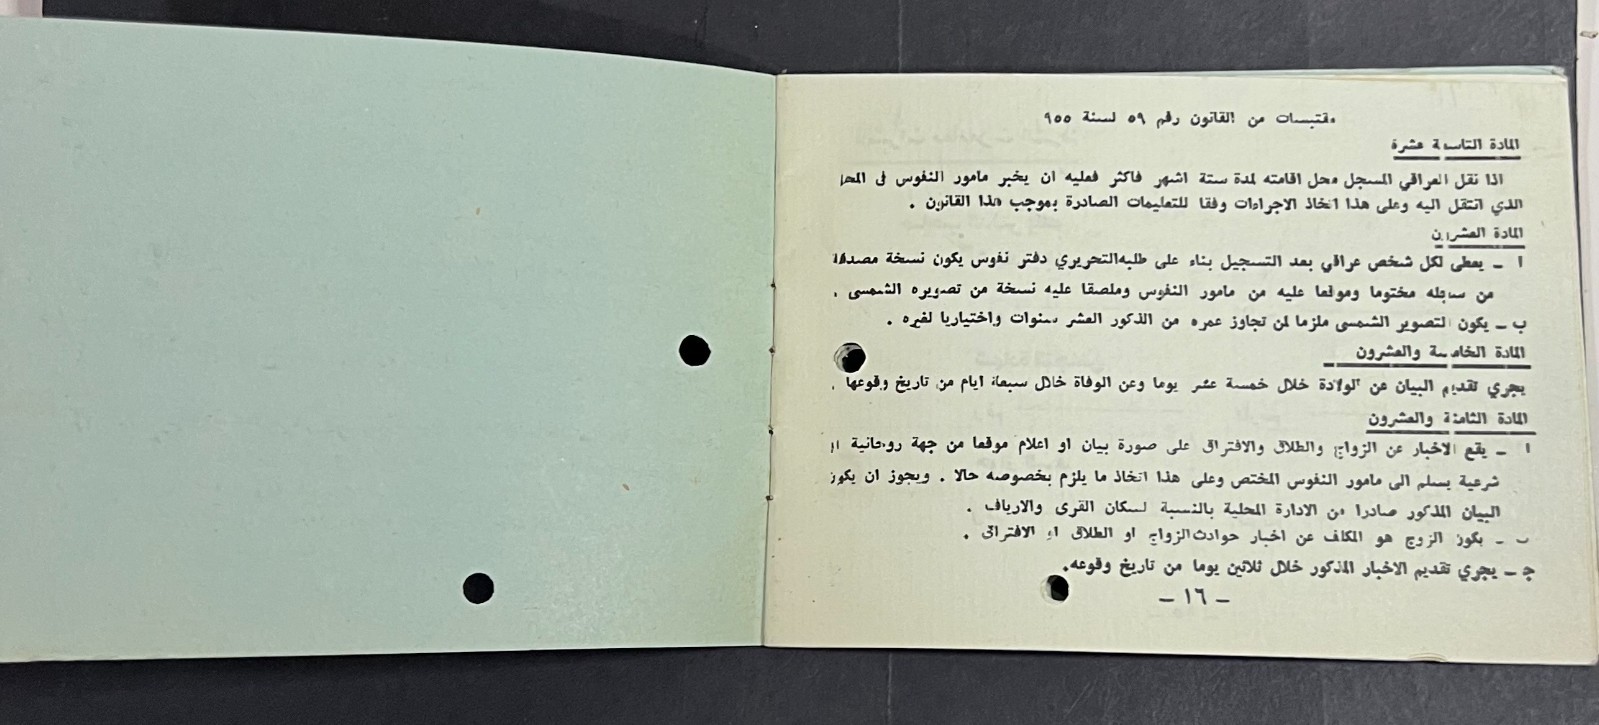 مقتبسات من القانون رقم ٥٩ لسنة ٩٥٥
المادة التاسعة عشرة
اذا نقل العراقي المسجل محل اقامته لمدة ستة اشهر فاكثر فعليه ان يخبر مامور النفوس فى المحل
الذي انتقل اليه وعلى هذا اتخاذ الاجراءات وفقا للتعليمات الصادرة بموجب هذا القانون .
المادة العشرون
ا ـ يعطى لكل شخص عراقي بعد التسجيل بناء على طلبه التحريري دفتر نفوس يكون نسخة مصدقة
من سجله مختوما وموقعا عليه من مامور النفوس وملصقا عليه نسخة من تصويره الشمسى .
ب ـ يكون التصوير الشمسى ملزما لمن تجاوز عمره من الذكور العشر سنوات واختياريا لغيره .
المادة الخامسة والعشرون
يجري تقديم البيان عن الولادة خلال خمسة عشر يوما وعن الوفاة خلال سبعة ايام من تاريخ وقوعها .
المادة الثامنة والعشرون
ا ـ يقع الاخبار عن الزواج والطلاق والافتراق على صورة بيان او اعلام موقعا من جهة روحانية او
شرعية يسلم الى مامور النفوس المختص وعلى هذا اتخاذ ما يلزم بخصوصه حالا . ويجوز ان يكون
البيان المذكور صادرا من الادارة المحلية بالنسبة لسكان القرى والارياف .
ب ـ يكون الزوج هو المكلف عن اخبار حوادث الزواج او الطلاق او الافتراق .
جـ ـ يجري تقديم الاخبار المذكور خلال ثلاثين يوما من تاريخ وقوعه.
ـ ١٦ ـ